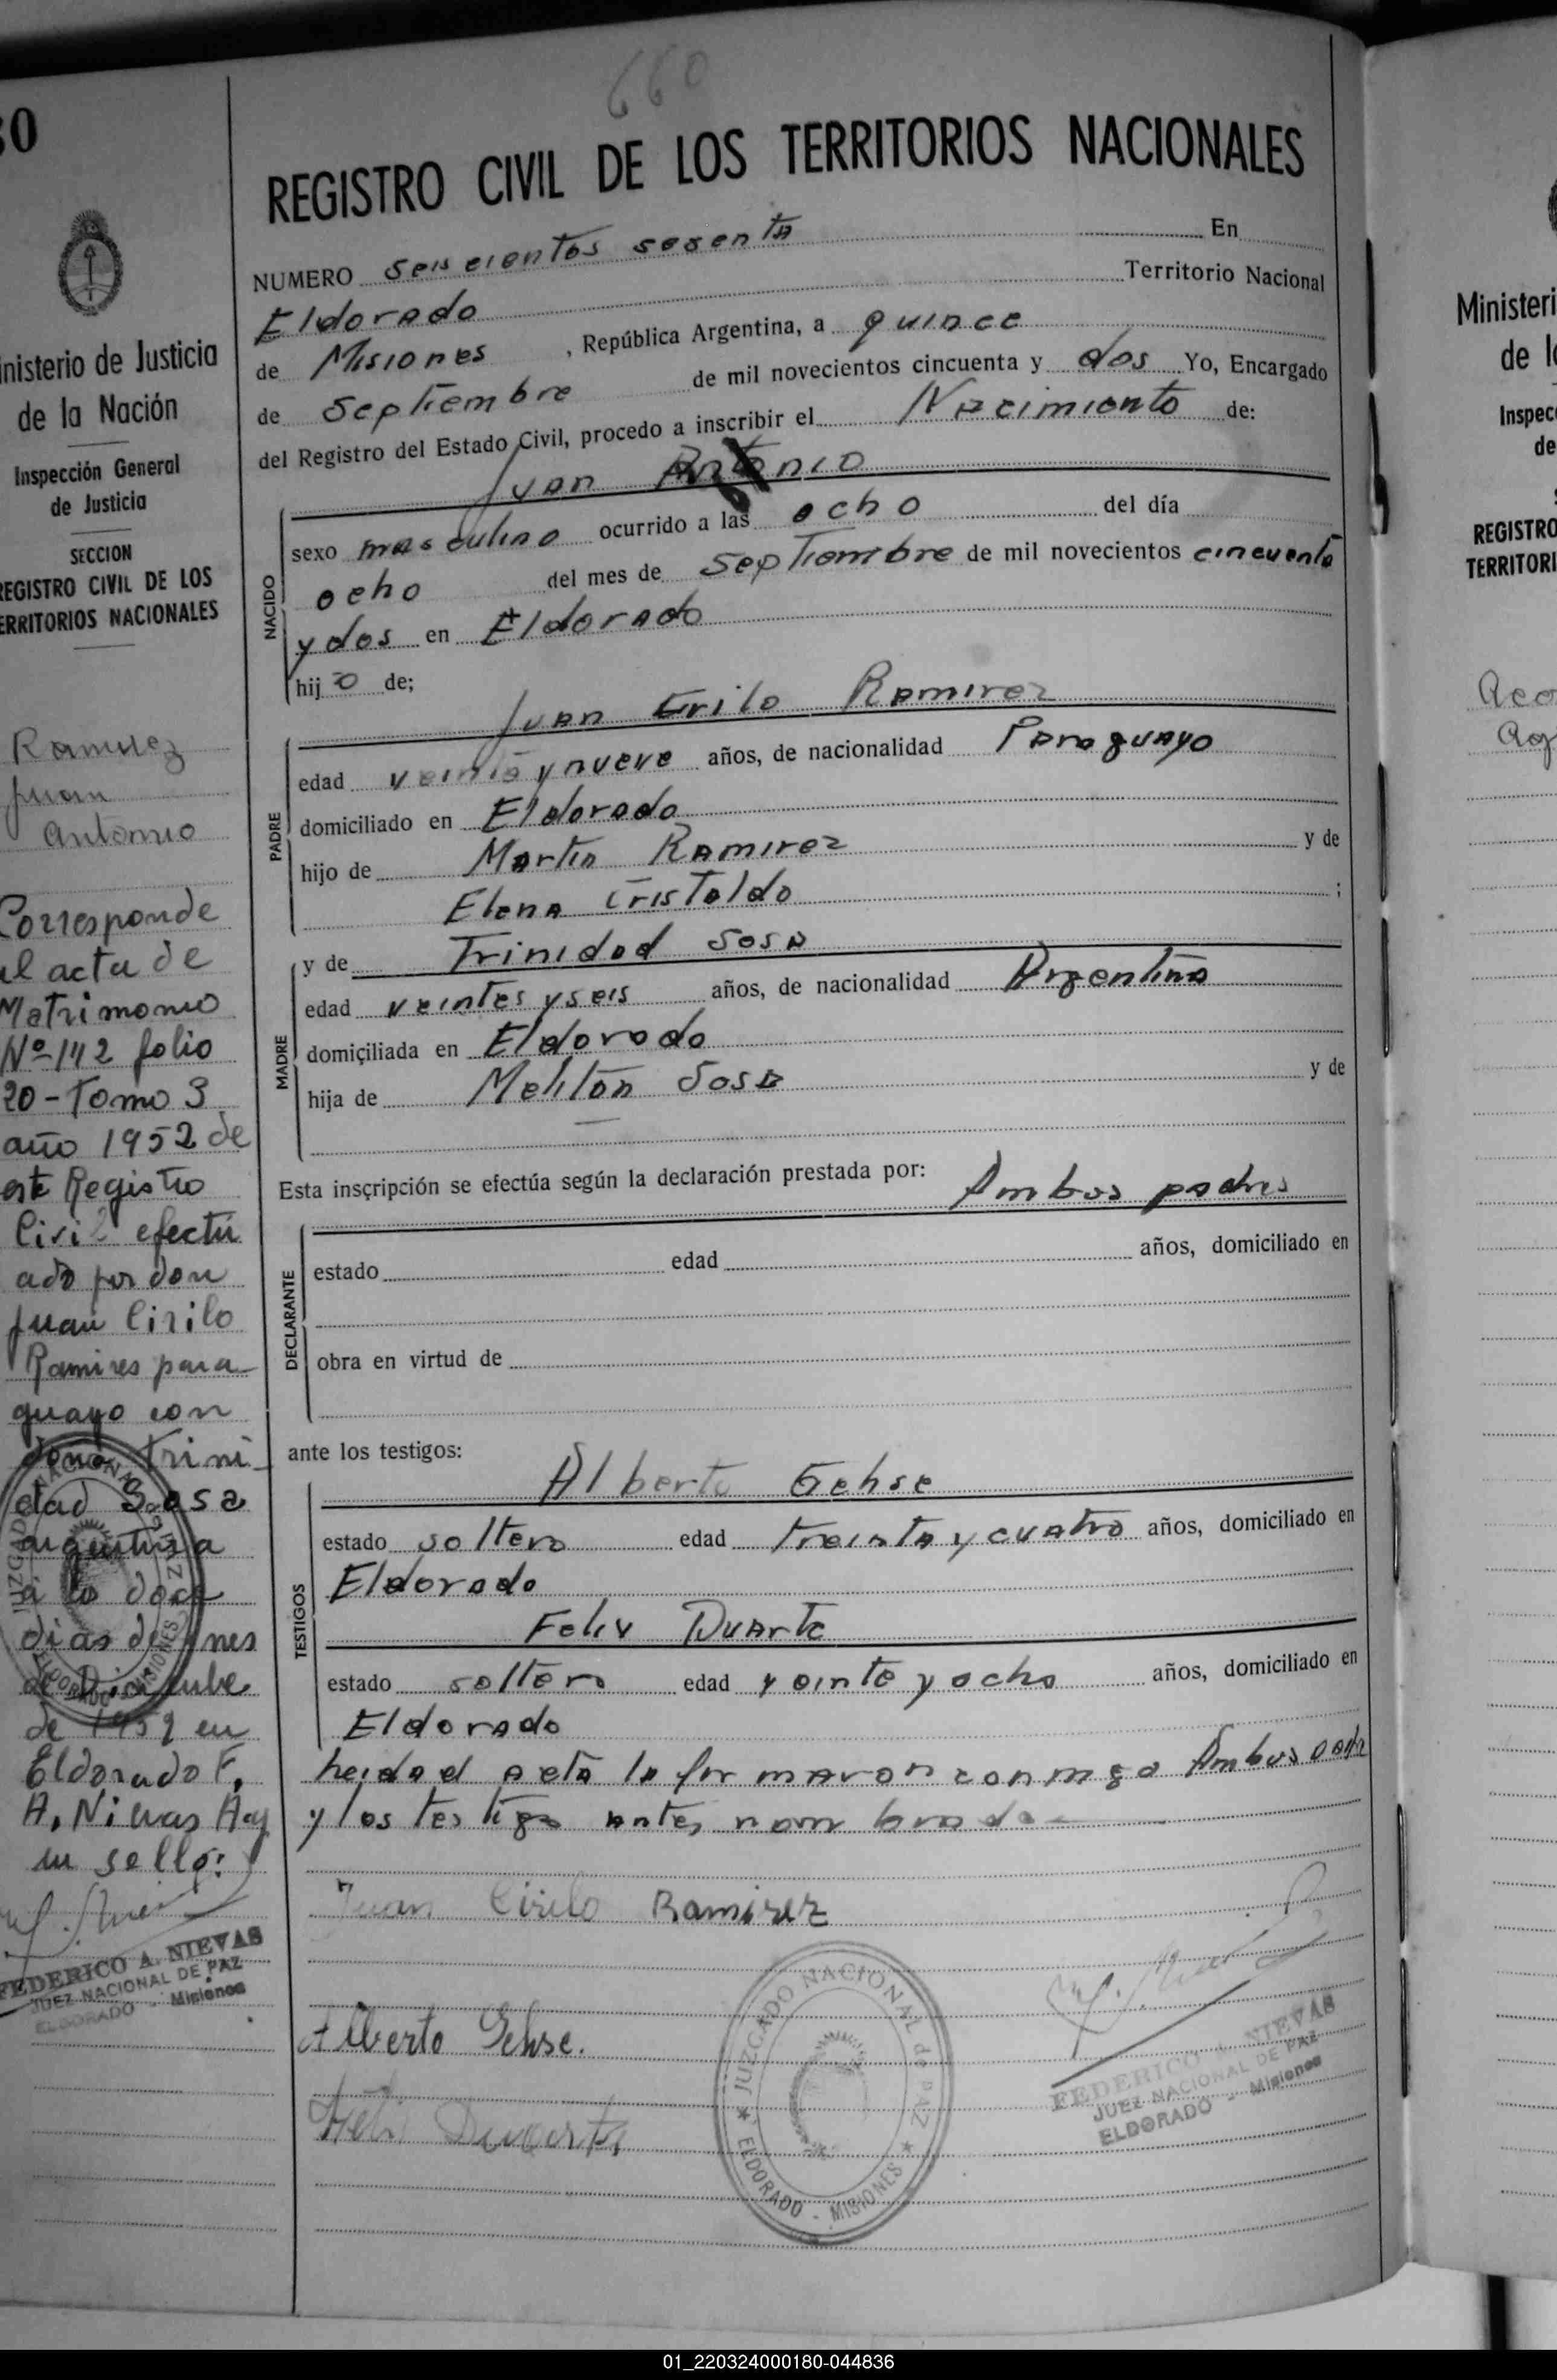 660
REGISTRO CIVIL DE LOS TERRITORIOS NACIONALES
NUMERO seiscientos sesenta En
Eldorado Territorio Nacional
de Misiones, República Argentina, a quince
de septiembre de mil novecientos cincuenta y dos Yo, Encargado
del Registro del Estado Civil, procedo a inscribir el Nacimiento de:
Juan Antonio
NACIDO
sexo masculino ocurrido a las ocho del día
ocho del mes de septiembre de mil novecientos cincuenta
y dos en Eldorado
hijo de;
Juan Cirilo Ramirez
PADRE
edad veinte y nueve años, de nacionalidad Paraguayo
domiciliado en Eldorado
hijo de Martin Ramirez y de
Elena Cristaldo ;
y de Trinidad Sosa
MADRE
edad veintes y seis años, de nacionalidad Argentina
domiciliada en Eldorado
hija de Meliton Sosa y de
—
Esta inscripción se efectúa según la declaración prestada por: Ambos padres
DECLARANTE
estado edad años, domiciliado en
obra en virtud de
ante los testigos:
Alberto Gehse
TESTIGOS
estado soltero edad treinta y cuatro años, domiciliado en
Eldorado
Felix Duarte
estado soltero edad veinte y ocho años, domiciliado en
Eldorado
Leida el acta la firmaron conmigo Ambos
y los testigos antes nombrado
Juan Cirilo Ramirez
Alberto Gehse.
Felix Duarte
JUZGADO NACIONAL de PAZ
ELDORADO - MISIONES
FEDERICO A. NIEVAS
JUEZ NACIONAL DE PAZ
ELDORADO - Misiones
60
inisterio de Justicia
de la Nación
Inspección General
de Justicia
SECCION
REGISTRO CIVIL DE LOS
ERRITORIOS NACIONALES
Ramirez
Juan
Antonio
Corresponde
al acta de
Matrimonio
Nº 142 folio
20 - Tomo 3
año 1952 de
este Registro
Civil efectu
ado por don
Juan Cirilo
Ramires para
guayo con
dona Trini
dad Sosa
argentina
a lo doce
dias de mes
de Diciembre
de 1952 en
Eldorado F.
A. Nievas Hay
un sello:
FEDERICO A. NIEVAS
JUEZ NACIONAL DE PAZ
ELDORADO - Misiones
JUZGADO NACIONAL PAZ
ELDORADO MISIONES
Ministeri
de l
Inspec
de
REGISTRO
TERRITORI
Aco
01_220324000180-044836